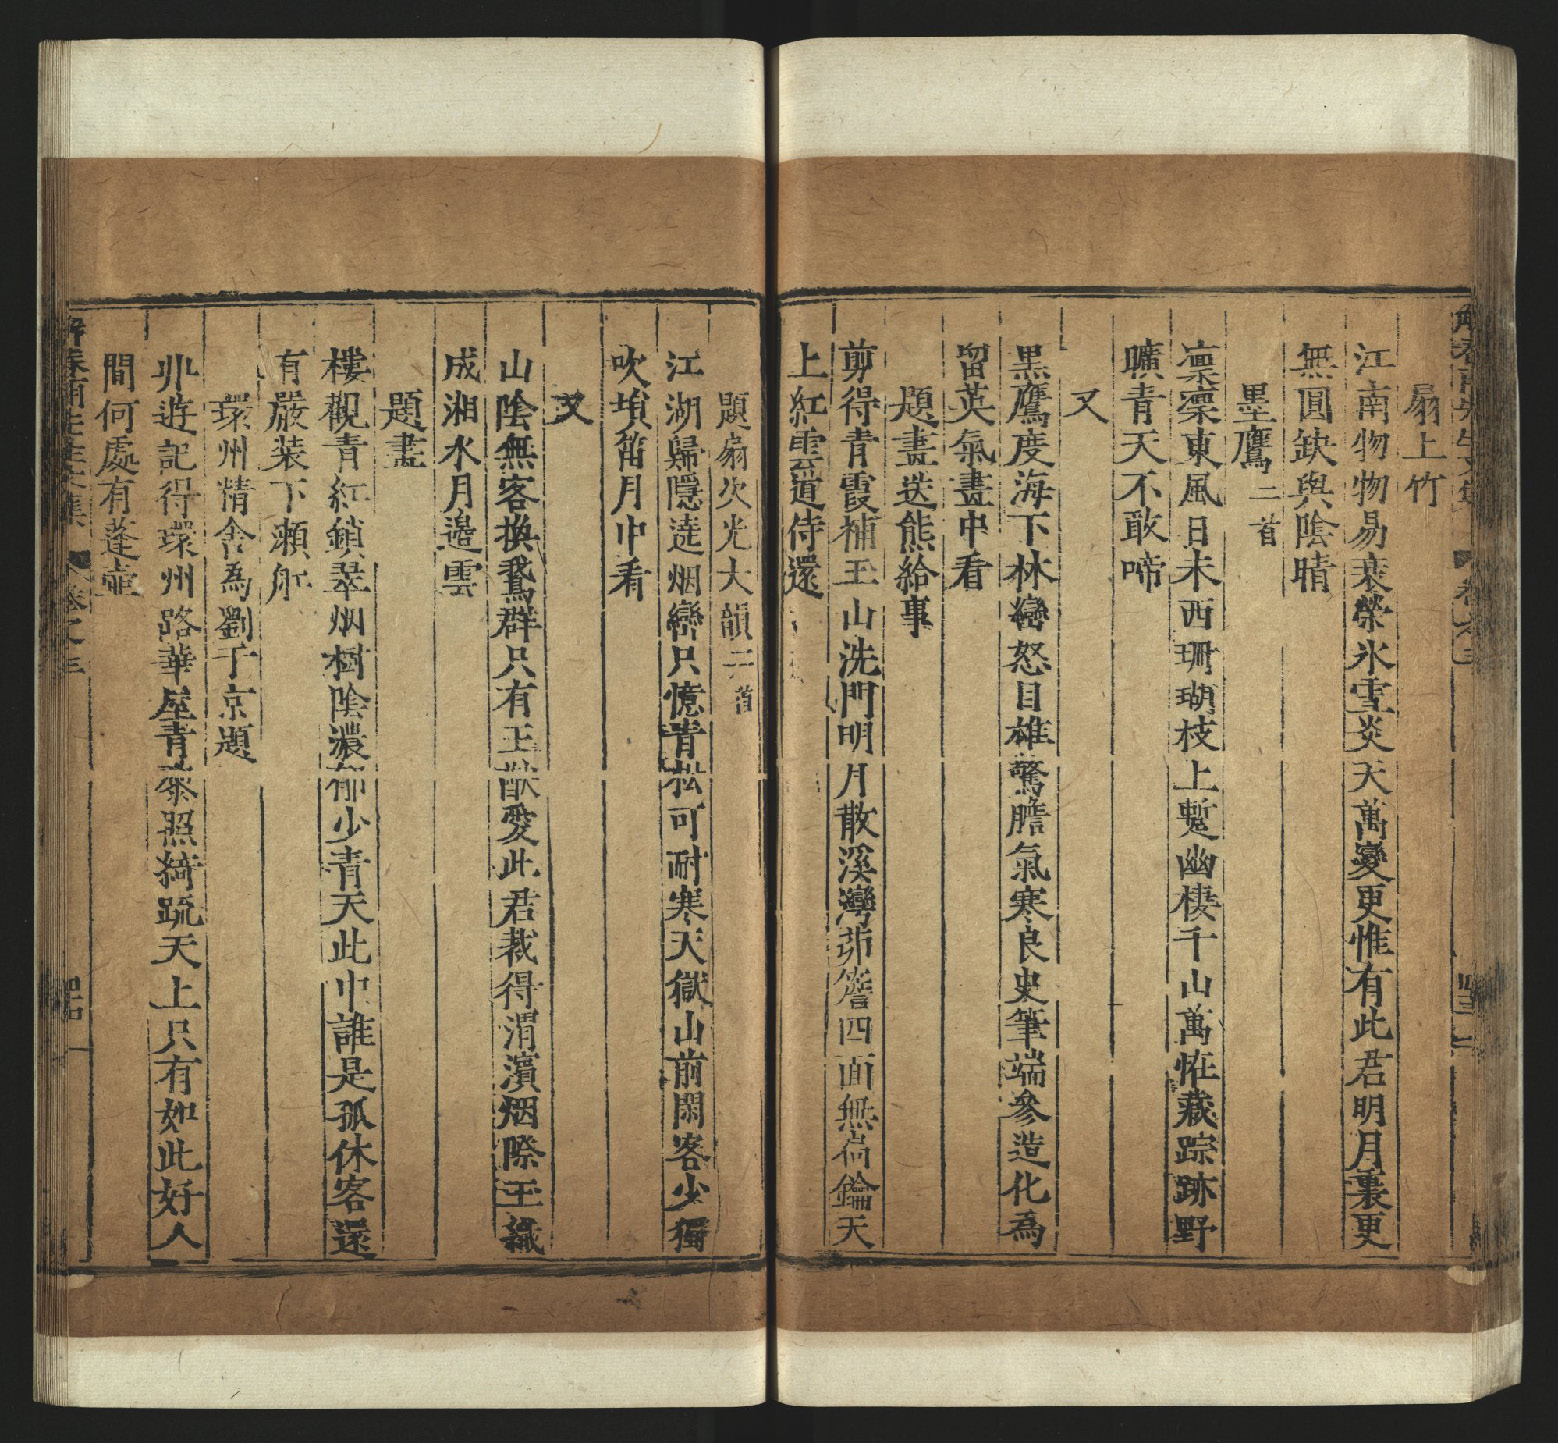 扇上竹
江南物物易衰榮氷雪炎天萬變更惟有此君明月裏更
無圓缺與陰晴
墨鷹二首
凛凛東風日未西珊瑚枝上蹔幽棲千山萬恠藏踪跡野
曠青天不敢啼
又
黒鷹度海下林巒怒目雄驚膽氣寒良史筆端參造化為
留英氣畫中看
題畫送熊給事
剪得青霞補玉山洗門明月散溪灣茆簷四面無扃鑰天
上紅雲道侍還
題扇次光大韻二首
江湖歸隱遶烟巒只憶青松可耐寒天嶽山前閑客少獨
吹塤箎月中看
又
山陰無客換鵞群只有王猷愛此君裁得渭濱烟際玉織
成湘水月邉雲
題畫
樓觀青紅鎖翠烟樹陰濃郁少青天此中誰是孤休客還
有嚴装下瀬舡
環州精舎為劉于京題
丱遊記得環州路華屋青藜照綺疏天上只有如此好人
間何處有蓬壺
解春雨先生文集 卷之三 四十一